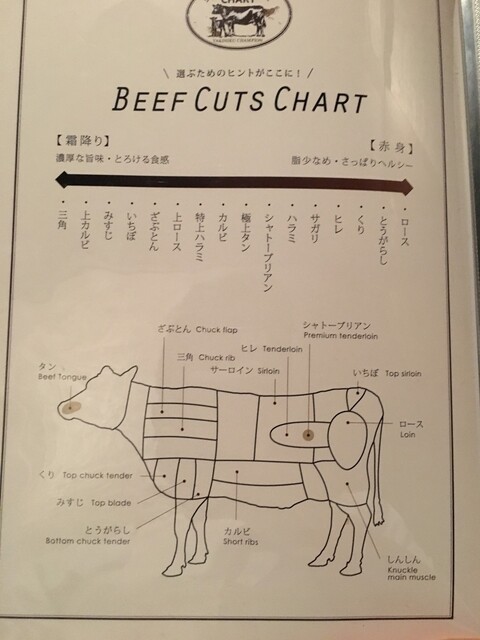 CHART
\ 選ぶためのヒントがここに! /
BEEF CUTS CHART
【霜降り】
濃厚な旨味・とろける食感
【赤身】
脂少なめ・さっぱりヘルシー
・三角
・上カルビ
・みすじ
・いちぼ
・ざぶとん
・上ロース
・特上ハラミ
・カルビ
・極上タン
・シャトーブリアン
・ハラミ
・サガリ
・ヒレ
・くり
・とうがらし
・ロース
ざぶとん Chuck flap
シャトーブリアン
Premium tenderloin
ヒレ Tenderloin
三角 Chuck rib
サーロイン Sirloin
タン
Beef Tongue
いちぼ Top sirloin
ロース
Loin
くり Top chuck tender
みすじ Top blade
とうがらし
Bottom chuck tender
カルビ
Short ribs
しんしん
Knuckle
main muscle